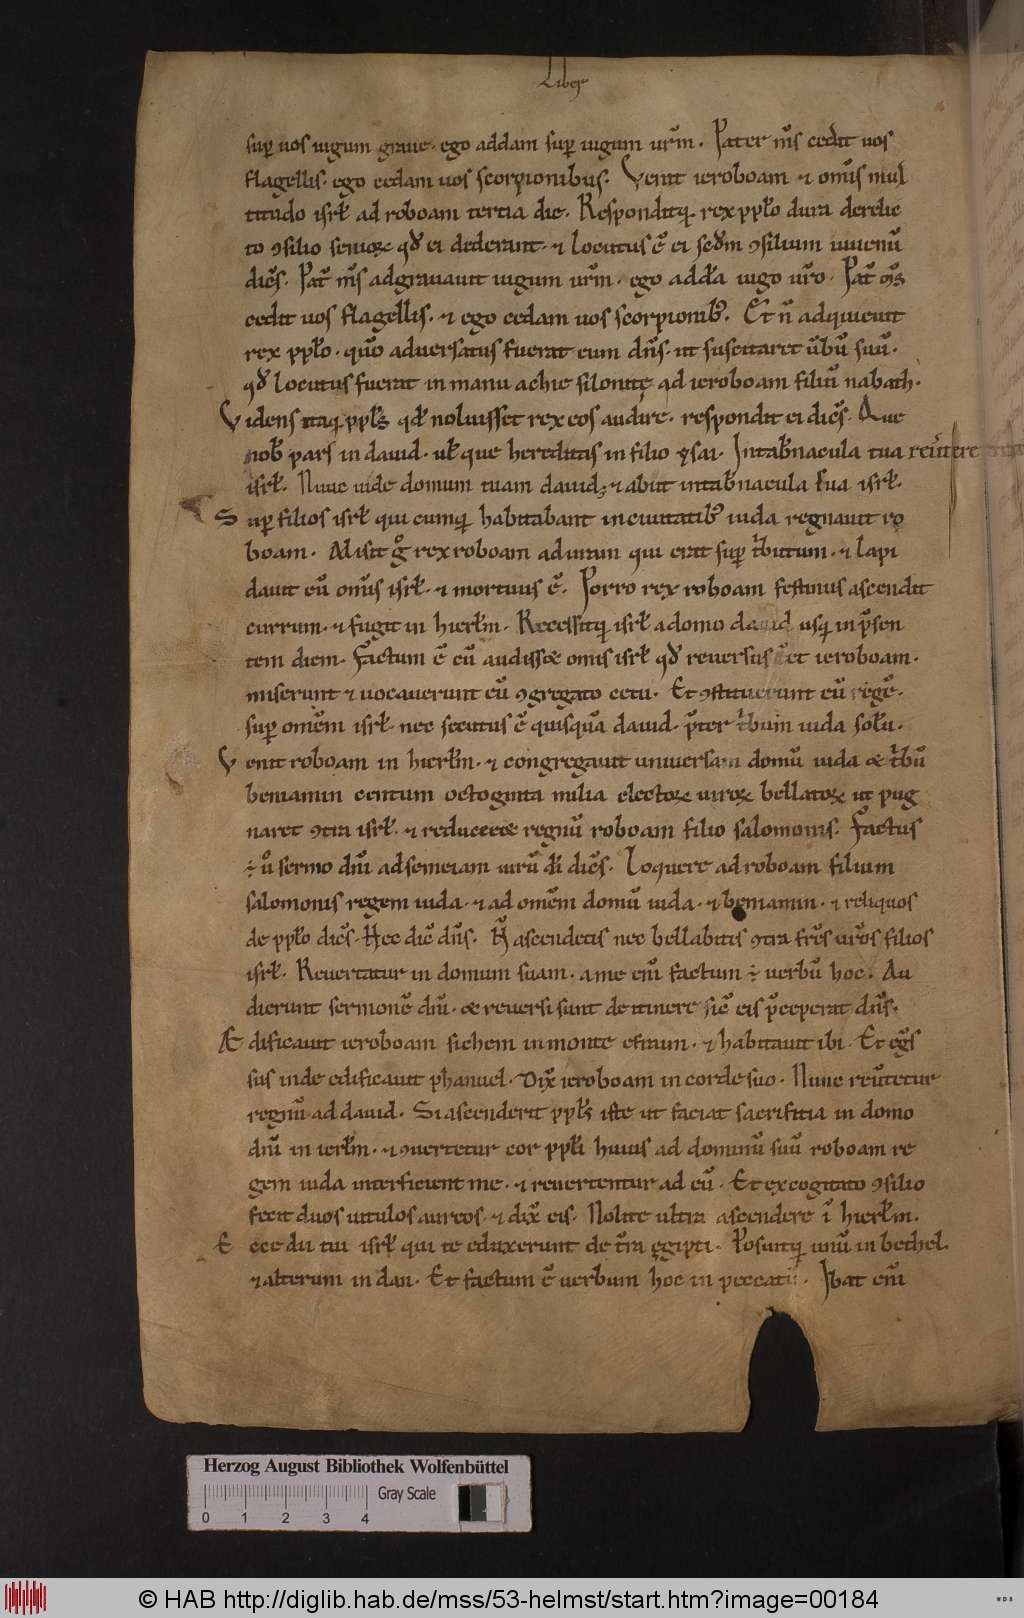 Liber
sup̄ uos iugum graue. ego addam sup̄ iugum ur̄m. Pater m̄s cedit uos
flagellis. ego cedam uos scorpionibus. Venit ieroboam ⁊ om̄is mul
titudo isrl̄ ad roboam tertia die. Responditq; rex pplo dura derelic
to ꝯsilio senioꝝ qd̄ ei dederant. ⁊ locutus ē ei scd̄m ꝯsilium iuuenū
dic̄s. Pat̄ m̄s adgrauauit iugum ur̄m. ego adda iugo ur̄o. Pat̄ m̄s
cedit uos flagellis. ⁊ ego cedam uos scorpionib;. Et n̄ adquieuit
rex pplo. qūo aduersatus fuerat eum dn̄s. ut suscitaret ūbū suū.
qd̄ locutus fuerat in manu achie silonitę ad ieroboam filiū nabath.
Videns itaq; ppls qd̄ noluisset rex eos audire. respondit ei dic̄s. Que
nob̄ pars in dauid. ul̄ que hereditas in filio ysai. In tab̄nacula tua reūtere
isrl̄. Nunc uide domum tuam dauid; ⁊ abiit in tab̄nacula sua isrl̄.
Sup̄ filios isrl̄ qui cumq; habitabant in ciuitatib; iuda regnauit ro
boam. Misit g̊ rex roboam aduram qui erat sup̄ t̄butum. ⁊ lapi
dauit eū om̄is isrl̄. ⁊ mortuus ē. Porro rex roboam festinus ascendit
currum. ⁊ fugit in hierl̄m. Recessitq; isrl̄ a domo dauid usq; in p̄sen
tem diem. Factum ē cū audisset omis isrl̄ qd̄ reuersus ēet ieroboam.
miserunt ⁊ uocauerunt eū ꝯgregato cetu. Et ꝯstituerunt eū regē.
sup̄ omēm isrl̄. nec secutus ē quisquā dauid. p̄ter t̄bum iuda solu.
Venit roboam in hierl̄m. ⁊ congregauit uniuersam domū iuda & t̄bū
beniamin centum octoginta milia electoꝝ uiroꝝ bellatoꝝ ut pug
naret ꝯtra isrl̄. ⁊ reduceret regnū roboam filio salomonis. Factus
÷ ů sermo dn̄i ad semeiam uirū dī dic̄s. Loquere ad roboam filium
salomonis regem iuda. ⁊ ad omēm domū iuda. ⁊ beniamin. ⁊ reliquos
de pplo dic̄s. Hec dic̄ dn̄s. N̄ ascendetis nec bellabitis ꝯtra fr̄s ur̄os filios
isrl̄. Reuertatur in domum suam. a me eni̅ factum ÷ uerbū hoc. Au
dierunt sermonē dn̄i. & reuersi sunt de itinere sic̄ eis p̄ceperat dn̄s.
Ædificauit ieroboam sichem in monte efraim. ⁊ habitauit ibi. Et egr̄s
sus inde edificauit phanuel. Dix̄ ieroboam in corde suo. Nunc reūtetur
regnū ad dauid. Si ascenderit ppls iste ut faciat sacrifitia in domo
dn̄i in ierl̄m. ⁊ ꝯuertetur cor ppli huius ad dominū suū roboam re
gem iuda interficient me. ⁊ reuertentur ad eū. Et excogitato ꝯsilio
fecit duos uitulos aureos. ⁊ dix̄ eis. Nolite ultra ascendere ī hierl̄m.
Ecce dii tui isrl̄ qui te eduxerunt de t̄ra egipti. Posuitq; unū in bethel.
⁊ alterum in dan. Et factum ē uerbum hoc in peccatū. Ibat eni̅
Herzog August Bibliothek Wolfenbüttel
Gray Scale
0 1 2 3 4
© HAB http://diglib.hab.de/mss/53-helmst/start.htm?image=00184